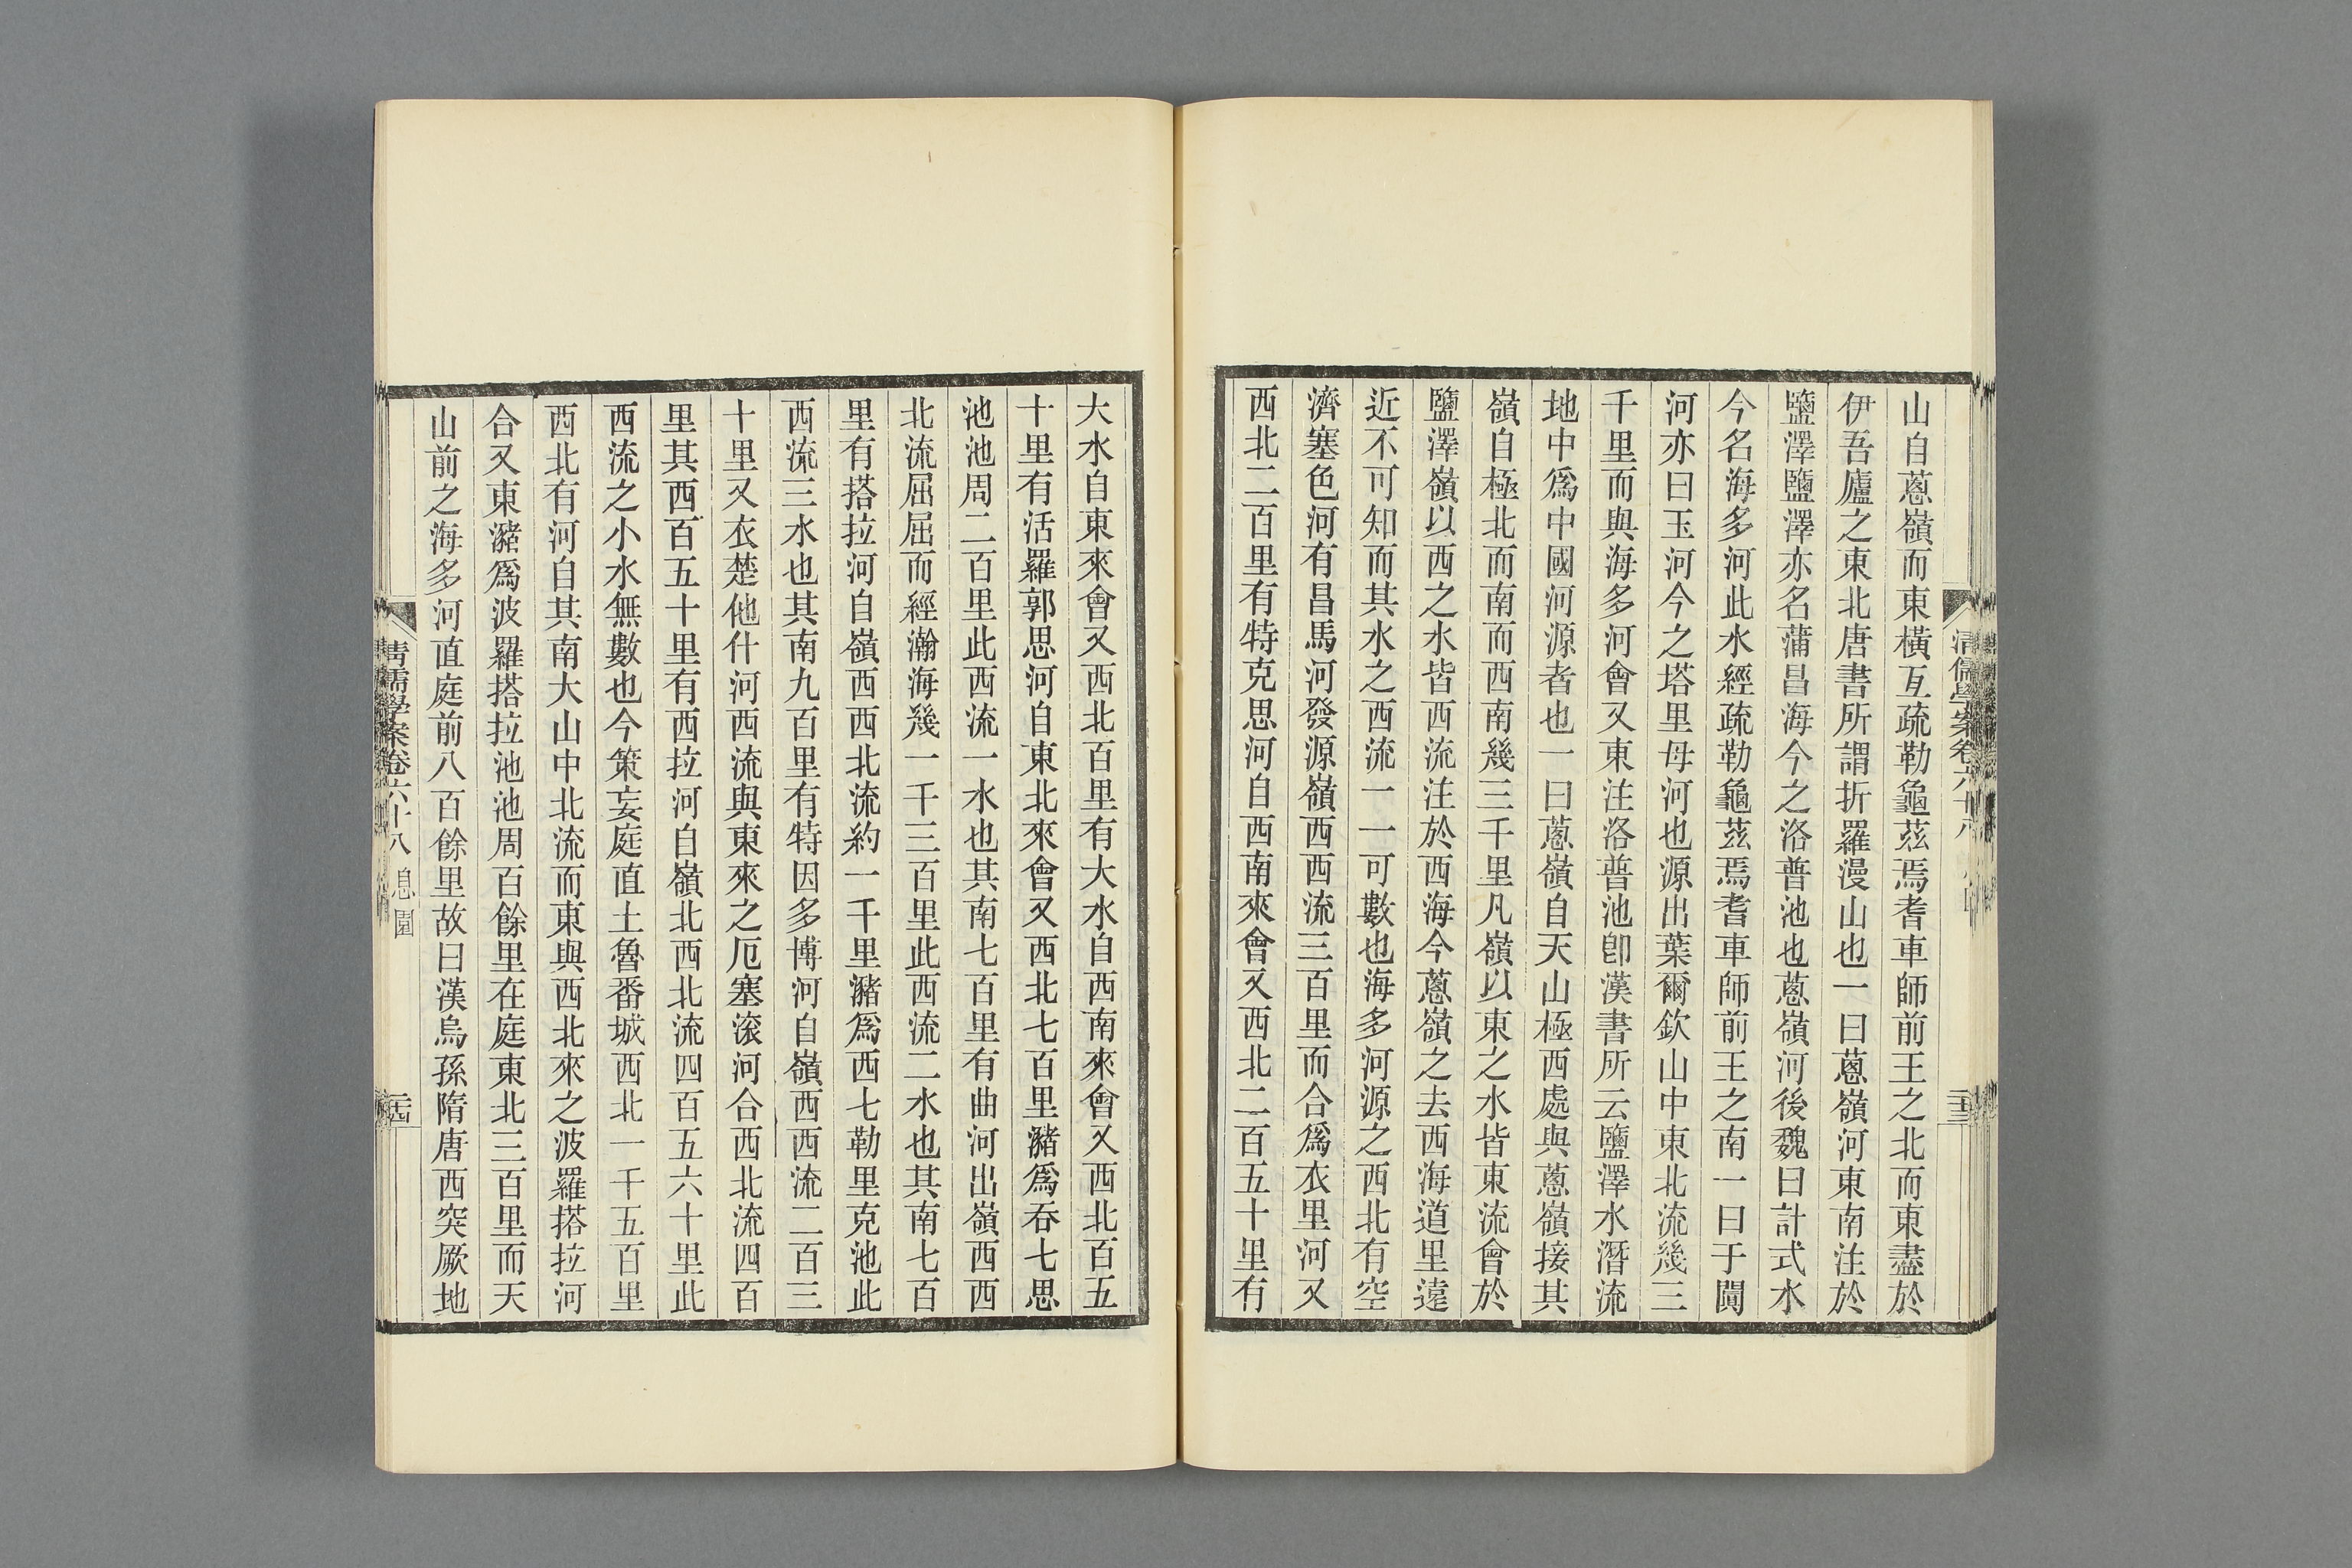 山自蔥嶺而東橫亙疏勒龜茲焉耆車師前王之北而東盡於
伊吾廬之東北唐書所謂折羅漫山也一曰蔥嶺河東南注於
鹽澤鹽澤亦名蒲昌海今之洛普池也蔥嶺河後魏曰計式水
今名海多河此水經疏勒龜茲焉耆車師前王之南一曰于闐
河亦曰玉河今之塔里母河也源出葉爾欽山中東北流幾三
千里而與海多河會又東注洛普池卽漢書所云鹽澤水潛流
地中爲中國河源者也一曰蔥嶺自天山極西處與蔥嶺接其
嶺自極北而南而西南幾三千里凡嶺以東之水皆東流會於
鹽澤嶺以西之水皆西流注於西海今蔥嶺之去西海道里遠
近不可知而其水之西流一一可數也海多河源之西北有空
濟塞色河有昌馬河發源嶺西西流三百里而合爲衣里河又
西北二百里有特克思河自西南來會又西北二百五十里有
清儒學案卷六十八
二十三
大水自東來會又西北百里有大水自西南來會又西北百五
十里有活羅郭思河自東北來會又西北七百里瀦爲吞七思
池池周二百里此西流一水也其南七百里有曲河出嶺西西
北流屈屈而經瀚海幾一千三百里此西流二水也其南七百
里有搭拉河自嶺西西北流約一千里瀦爲西七勒里克池此
西流三水也其南九百里有特因多博河自嶺西西流二百三
十里又衣楚他什河西流與東來之厄塞滾河合西北流四百
里其西百五十里有西拉河自嶺北西北流四百五六十里此
西流之小水無數也今策妄庭直土魯番城西北一千五百里
西北有河自其南大山中北流而東與西北來之波羅搭拉河
合又東瀦爲波羅搭拉池池周百餘里在庭東北三百里而天
山前之海多河直庭前八百餘里故曰漢烏孫隋唐西突厥地
清儒學案卷六十八 息園
二十四